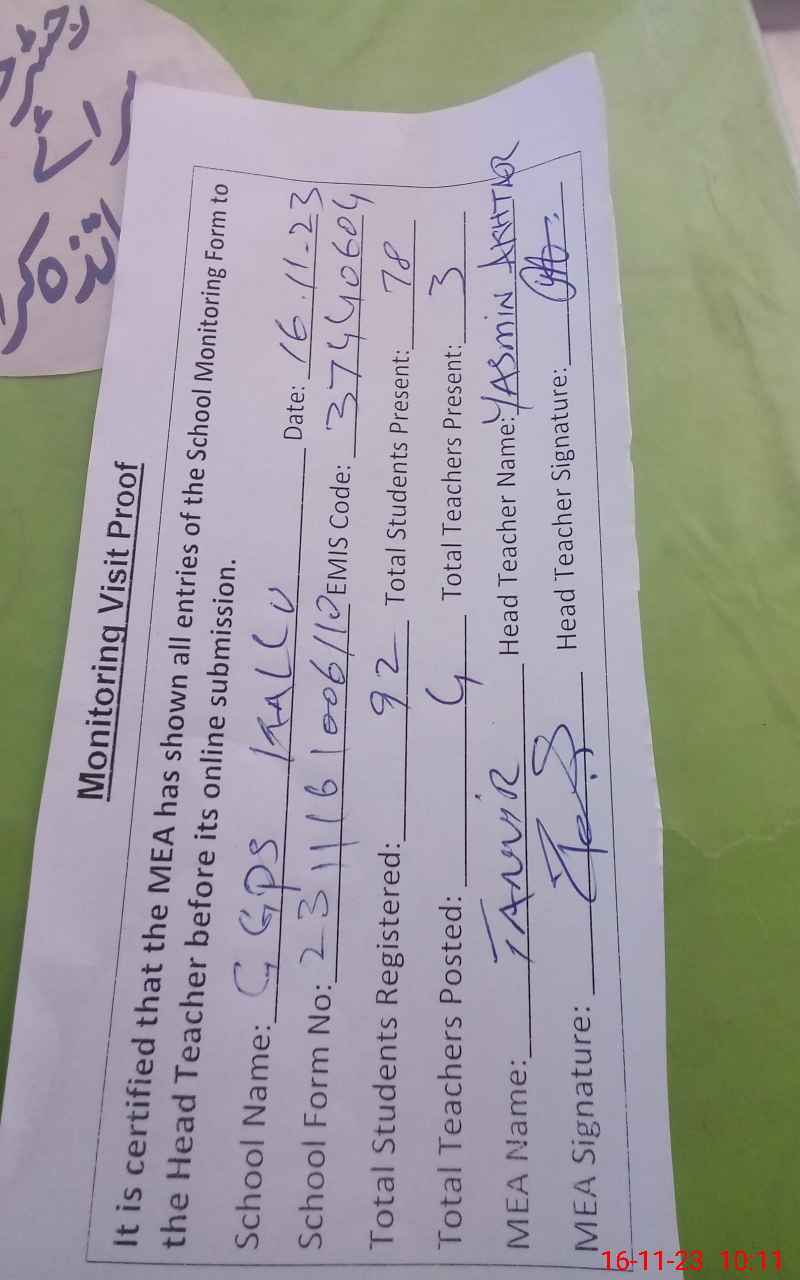 Monitoring Visit Proof
It is certified that the MEA has shown all entries of the School Monitoring Form to
the Head Teacher before its online submission.
School Name: GGPS KALLU Date: 16.11.23
School Form No: 2311161006110 EMIS Code: 37440604
Total Students Registered: 92 Total Students Present: 78
Total Teachers Posted: 4 Total Teachers Present: 3
MEA Name: TANVIR Head Teacher Name: YASMIN AKHTAR
MEA Signature: Head Teacher Signature:
رجسٹر
برائے
تذکرہ
16-11-23 10:11